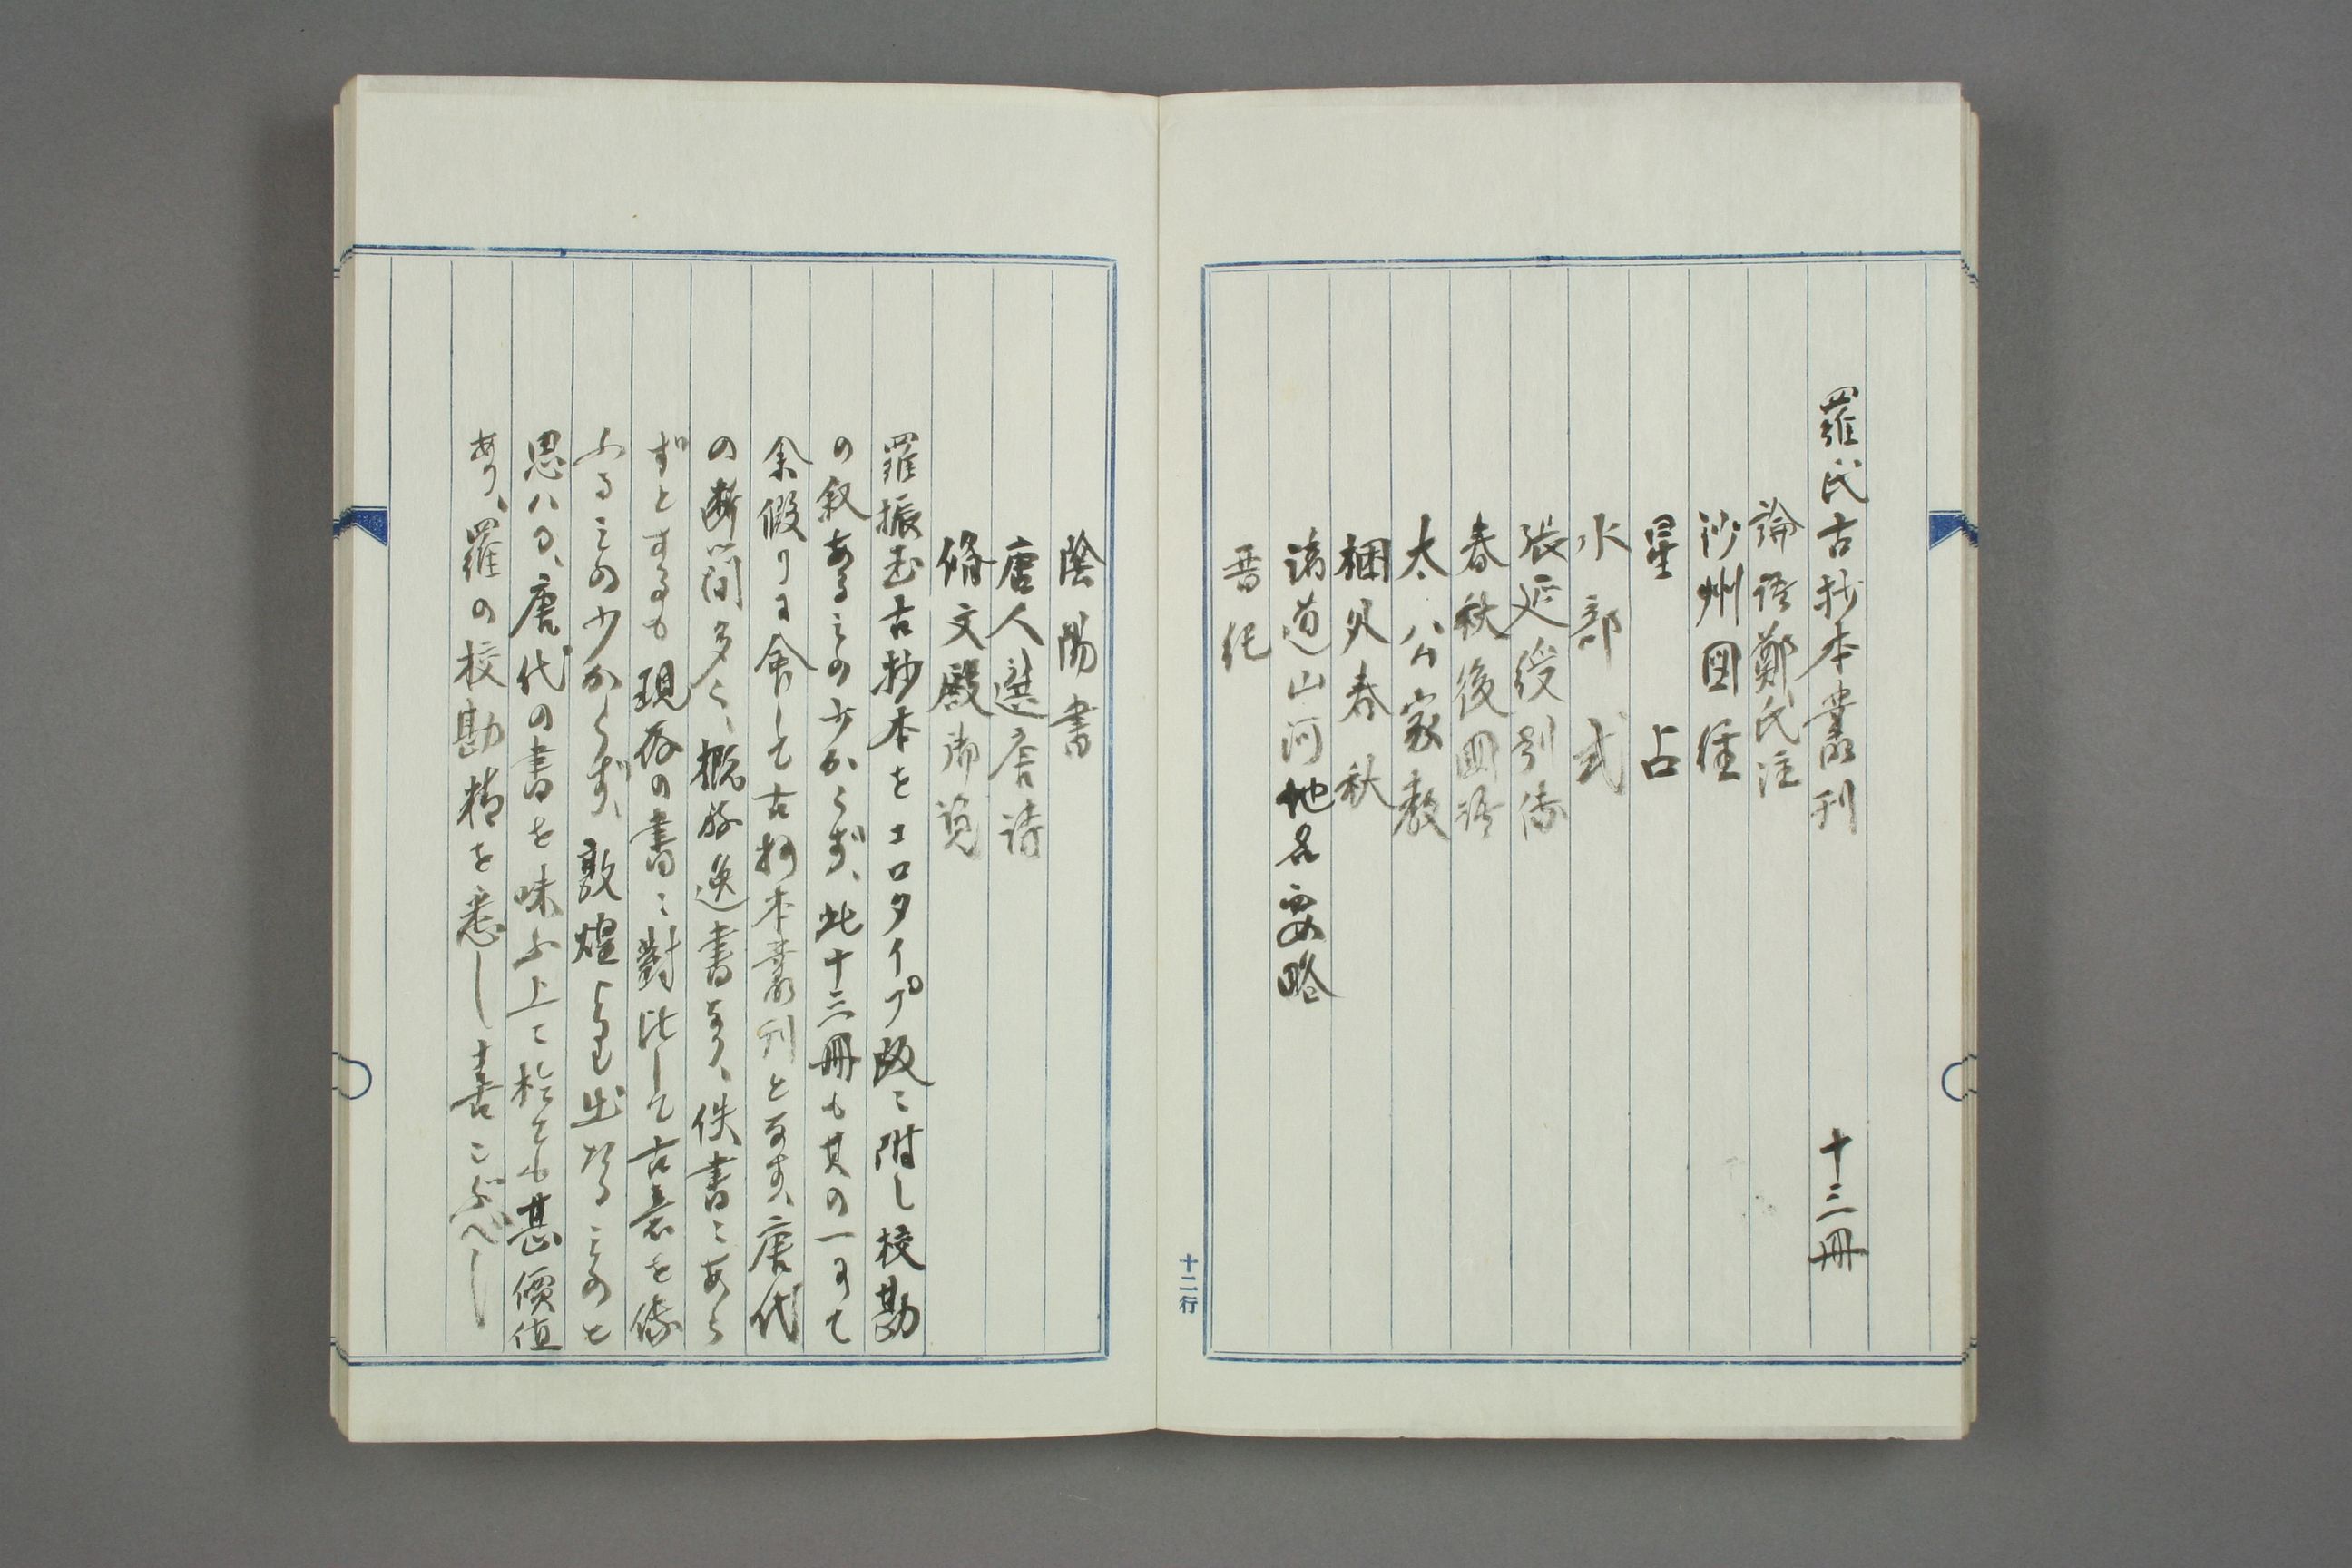 羅氏古抄本叢刊　十三冊
論語鄭氏注
沙州図経
星占
水部式
張延綬別傳
春秋後国語
太公家教
梱外春秋
諸道山河地名要略
晋紀
十二行
陰陽書
唐人選唐詩
脩文殿御覧
羅振玉古抄本をコロタイプ版に附し校勘
の叙あるもの少からず、此十三冊も其の一にて
余假りに命して古抄本叢刊となす、唐代
の断簡多く、概ね逸書なり、佚書にあら
ずとするも現存の書に對比して古意を傳
ふるもの少からず、敦煌より出たるものと
思はる、唐代の書を味ふ上に於ても甚價値
あり、羅の校勘精を悉し喜こぶべし